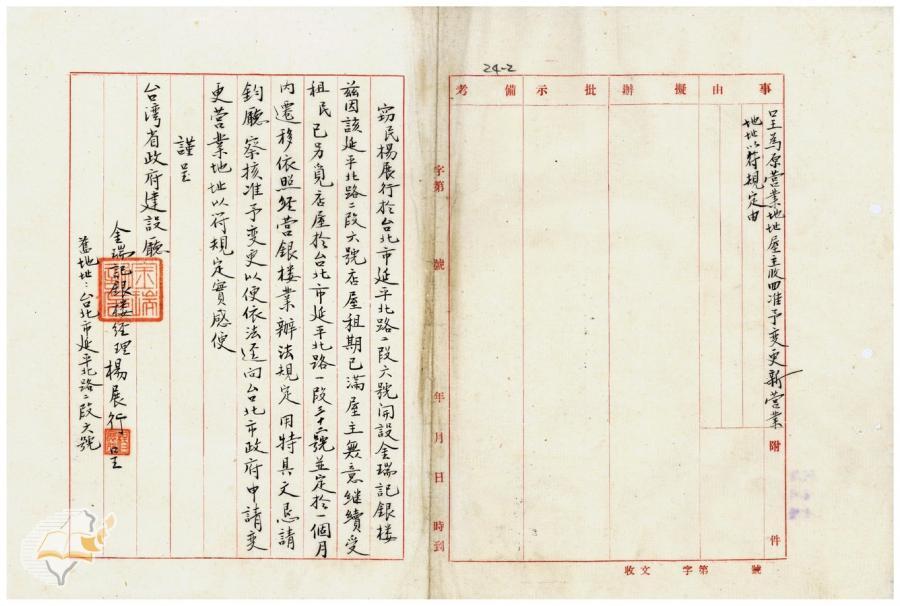 24-2
事由
擬辦
批示
備考
呈為原營業地址屋主收回准予变更新營業
地址以符規定由
附件
收文 字第 號
字第 號 年 月 日 時到
窃民楊展行於台北市延平北路二段六號開設金瑞記銀楼
茲因該延平北路二段六號店屋租期已滿屋主無意継續受
租民已另覓店屋於台北市延平北路一段三十二號並定於一個月
內遷移依照経营銀楼業辦法規定用特具文恳請
鈞廳察核准予变更以便依法逕向台北市政府申請变
更营業地址以符規定實感便
謹呈
台湾省政府建設廳
金瑞記銀楼经理楊展行呈
舊地址：台北市延平北路二段六號